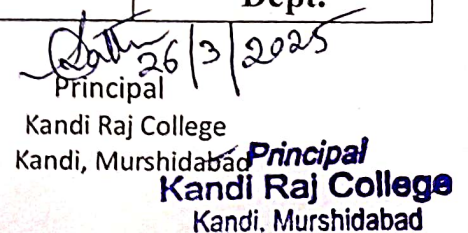 Dept.
26/3/2025
Principal
Kandi Raj College
Kandi, Murshidabad
Principal
Kandi Raj College
Kandi, Murshidabad